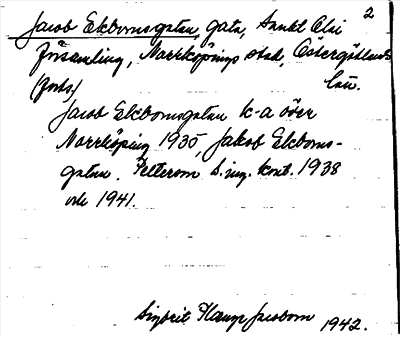 2
Jacob Ekbomsgatan, gata, Sankt Olai
församling, Norrköpings stad, Östergötlands
(forts.) län.
Jacob Ekbomsgatan k-a över
Norrköping 1935, Jakob Ekboms-
gatan. Petterson S. ing. kont. 1938
och 1941.
Sigbrit Plaenge Jacobson 1942.